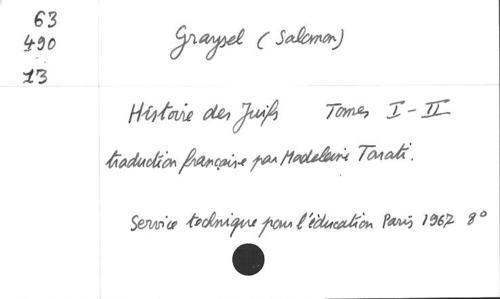 63
490
13
Graysel (Salomon)
Histoire des Juifs Tomes I-II
traduction française par Madeleine Tarati.
Service technique pour l'éducation Paris 1967 8°